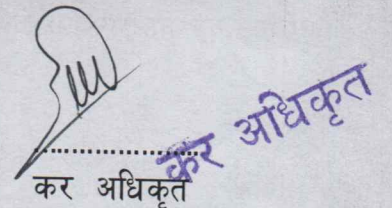 कर अधिकृत
कर अधिकृत